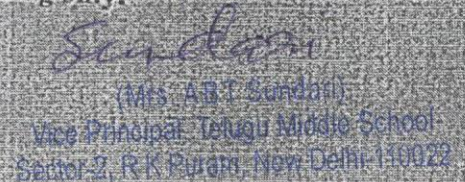 Sundari
(Mrs. A B T Sundari)
Vice Principal, Telugu Middle School
Sector-2, R K Puram, New Delhi-110022